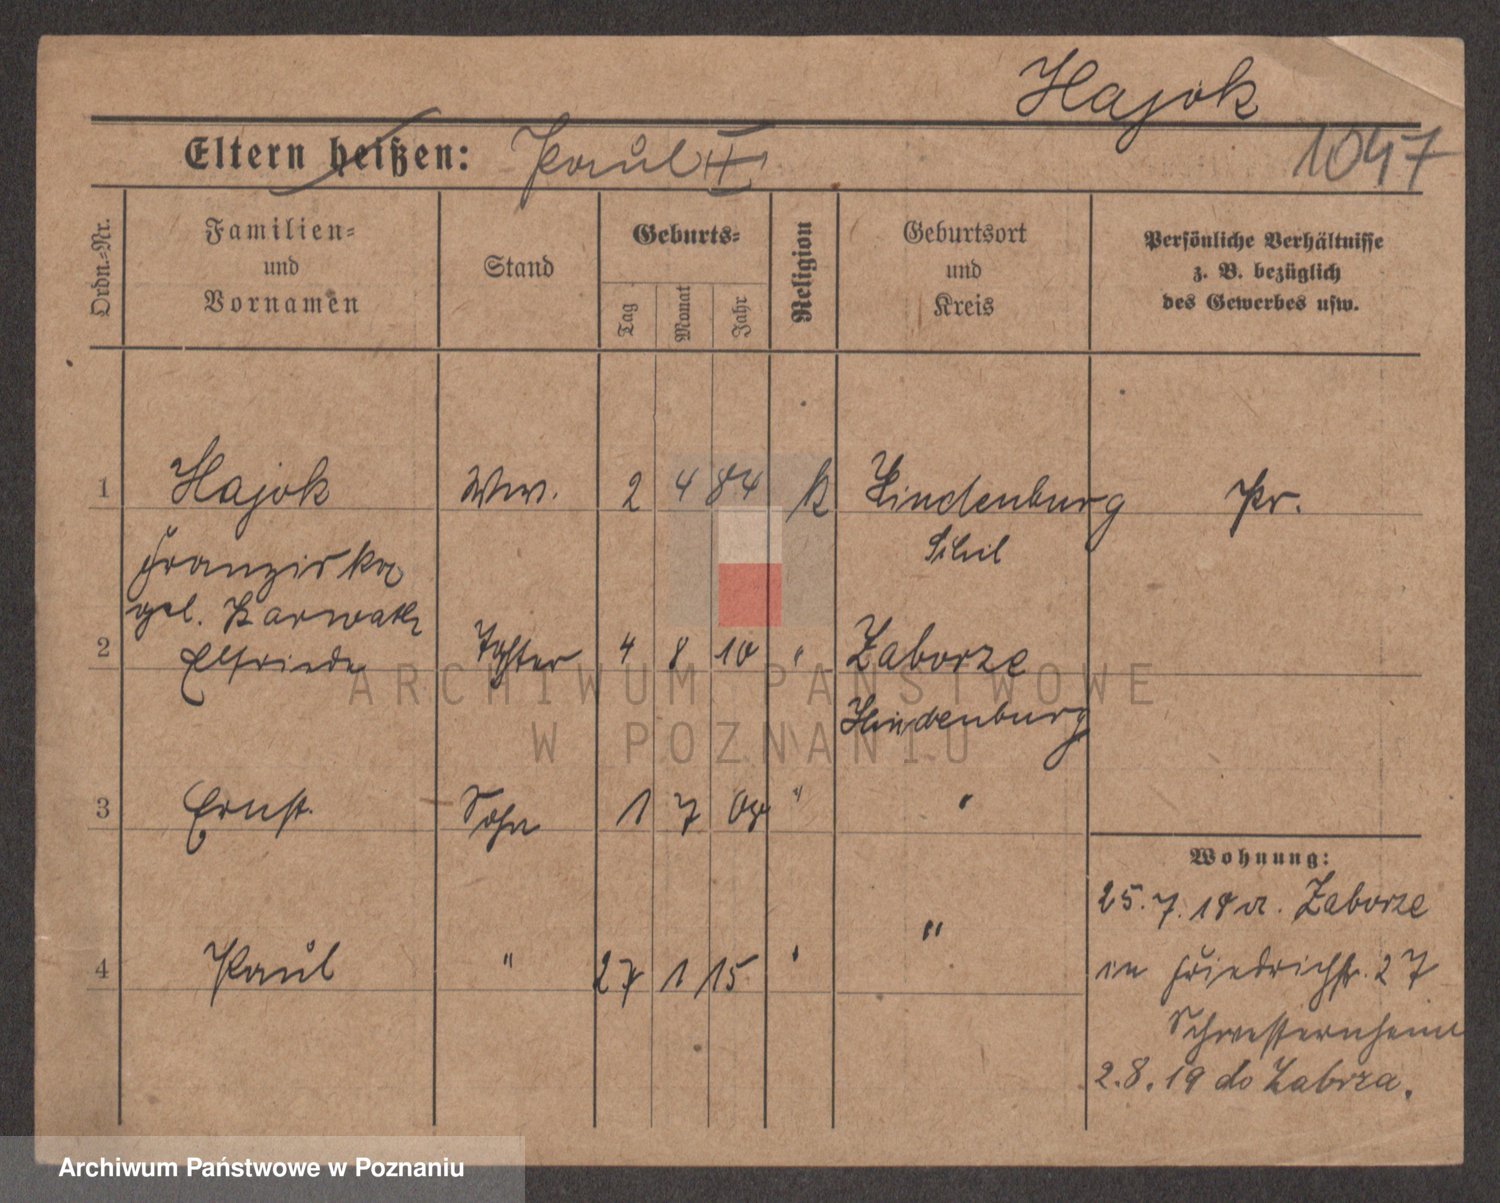 Hajok
1047
Eltern heißen: Paul II
Ordn.-Nr.
Familien-
und
Vornamen
Stand
Geburts-
Tag
Monat
Jahr
Religion
Geburtsort
und
Kreis
Persönliche Verhältnisse
z. B. bezüglich
des Gewerbes usw.
1 Hajok Ww. 2 4 84 k Hindenburg Pr.
Franziska Schl
geb. Karwath
2 Elfriede Tochter 4 8 10 " Zaborze
Hindenburg
3 Ernst. Sohn 1 7 08 " "
4 Paul " 27 1 15 " "
Wohnung:
25.7.18 a. Zaborze
in Friedrichstr. 27
Schwesternheim
2.8.19 do Zabrza.
ARCHIWUM PAŃSTWOWE
W POZNANIU
Archiwum Państwowe w Poznaniu